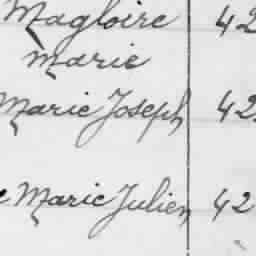 Magloire 42
Marie
Marie Joseph 42
Marie Julien 42